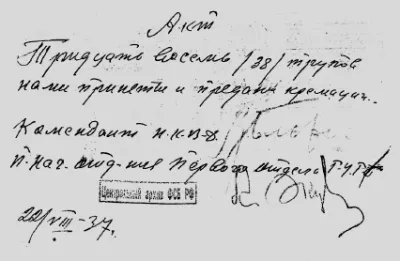 Акт
Тридцать восемь /38/ трупов
нами приняты и преданы кремации.
Комендант НКВД
П. нач. отд-ния Первого отдела Г.У.Г.Б.
Центральный архив ФСБ РФ
22/VIII-37.